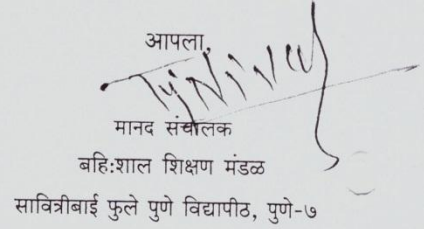 आपला,
मानद संचालक
बहि:शाल शिक्षण मंडळ
सावित्रीबाई फुले पुणे विद्यापीठ, पुणे-७